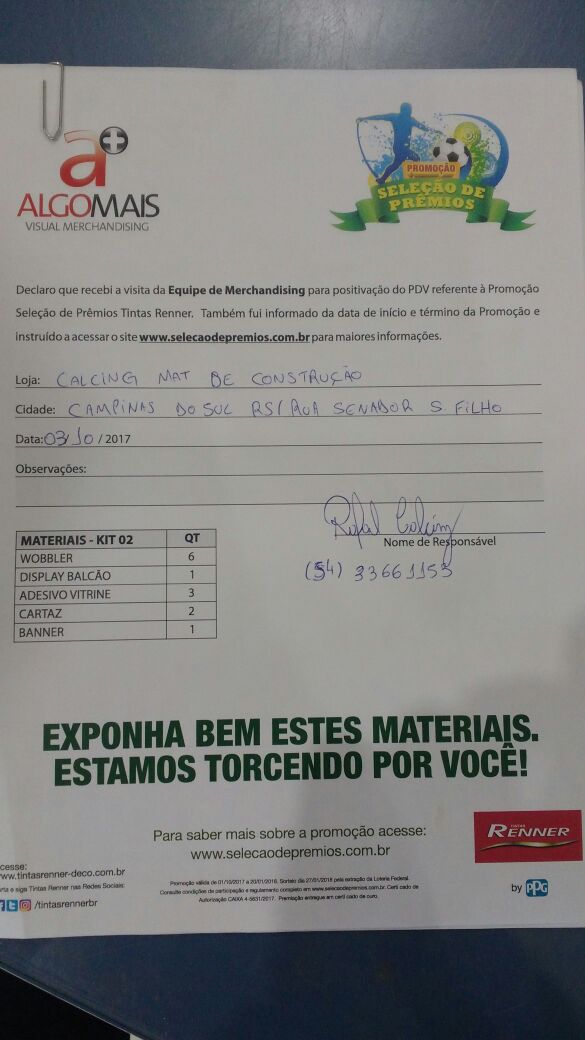 a+
ALGOMAIS
VISUAL MERCHANDISING
PROMOÇÃO
SELEÇÃO DE
PRÊMIOS
Declaro que recebi a visita da Equipe de Merchandising para positivação do PDV referente à Promoção
Seleção de Prêmios Tintas Renner. Também fui informado da data de início e término da Promoção e
instruído a acessar o site www.selecaodepremios.com.br para maiores informações.
Loja: CALCING MAT DE CONSTRUÇÃO
Cidade: CAMPINAS DO SUL RS/RUA SENADOR S. FILHO
Data: 03/10 / 2017
Observações:
Nome de Responsável
(54) 33661153
MATERIAIS - KIT 02 QT
WOBBLER 6
DISPLAY BALCÃO 1
ADESIVO VITRINE 3
CARTAZ 2
BANNER 1
EXPONHA BEM ESTES MATERIAIS.
ESTAMOS TORCENDO POR VOCÊ!
Para saber mais sobre a promoção acesse:
www.selecaodepremios.com.br
TINTAS
RENNER
by PPG
cesse:
ww.tintasrenner-deco.com.br
rta e siga Tintas Renner nas Redes Sociais:
/tintasrennerbr
Promoção válida de 01/10/2017 a 20/01/2018. Sorteio dia 27/01/2018 pela extração da Loteria Federal.
Consulte condições de participação e regulamento completo em www.selecaodepremios.com.br. Certi cado de
Autorização CAIXA 4-5631/2017. Premiação entregue em certi cado de ouro.